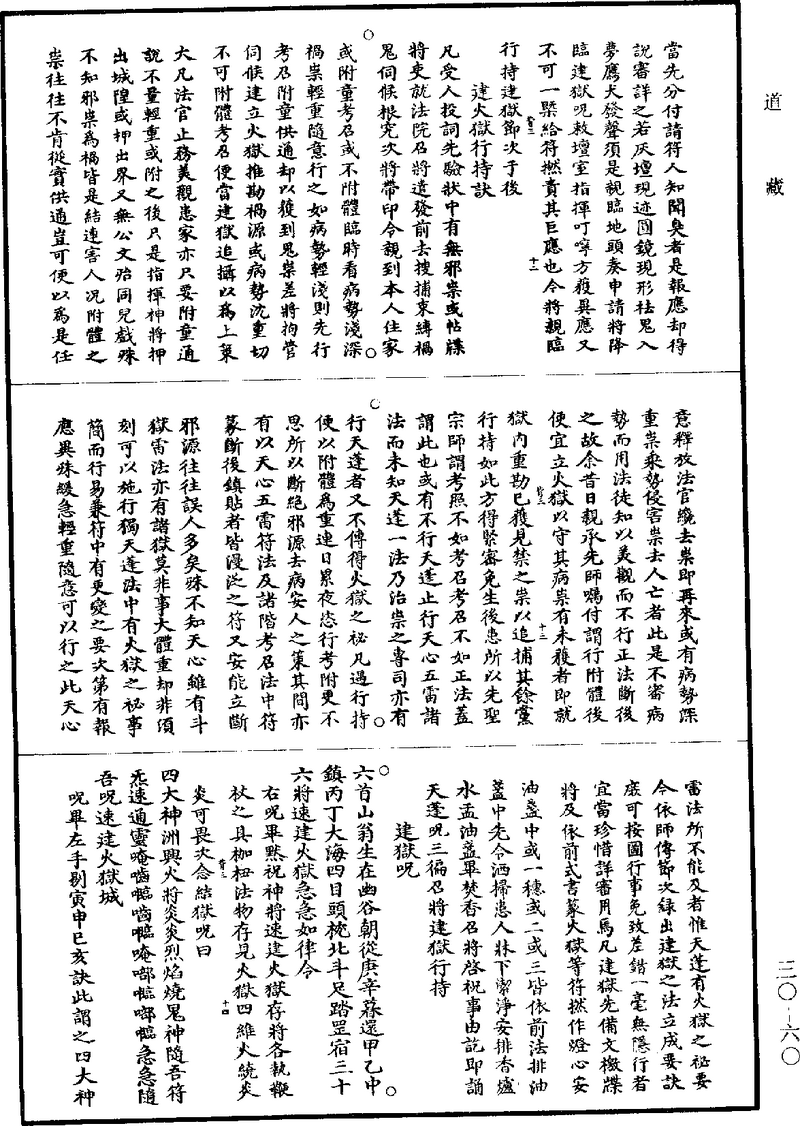 道藏
當先分付請符人知聞臭者是報應却得
說審詳之若灰壇現迹圓鏡現形祛鬼入
夢鷹犬發聲須是親臨地頭奏申請將降
臨建獄呪敕壇室指揮叮嚀方獲異應又
不可一槩給符撚責其巨應也今將親臨
行持建獄節次于後
建火獄行持訣
凡受人投詞先驗狀中有無邪祟或帖牒
將吏就法院召將遣發前去搜捕束縛禍
鬼伺候根究次將帶印令親到本人住家
或附童考召或不附體臨時看病勢淺深
禍祟輕重隨意行之如病勢輕淺則先行
考召附童供通却以獲到鬼祟差將拘管
伺候建立火獄推勘禍源或病勢沈重切
不可附體考召便當建獄追攝以爲上策
大凡法官止務美觀患家亦只要附童通
說不量輕重或附之後只是指揮神將押
出城隍或押出界又無公文殆同兒戲殊
不知邪祟爲禍皆是結連害人况附體之
祟往往不肯從實供通豈可便以爲是任
意釋放法官纔去祟即再來或有病勢深
重祟乘勢侵害祟去人亡者此是不審病
勢而用法徒知以美觀而不行正法斷後
之故余昔日親承先師囑付謂行附體後
便宜立火獄以守其病祟有未獲者即就
獄内重勘已獲見禁之祟以追捕其餘黨
行持如此方得緊審免生後患所以先聖
宗師謂考照不如考召考召不如正法蓋
謂此也或有不行天蓬止行天心五雷諸
法而未知天蓬一法乃治祟之專司亦有
行天蓬者又不傳得火獄之祕凡遇行持
便以附體爲重連日累夜恣行考附更不
思所以斷絕邪源去病安人之策其間亦
有以天心五雷符法及諸階考召法中符
篆斷後鎮貼者皆漫泛之符又安能立斷
邪源往往誤人多矣殊不知天心雖有斗
獄雷法亦有諸獄莫非事大體重却非須
刻可以施行獨天蓬法中有火獄之祕事
簡而行易兼符中有更變之要次第有報
應異殊緩急輕重隨意可以行之此天心
雷法所不能及者惟天蓬有火獄之祕要
今依師傳節次録出建獄之法立成要訣
庶可按圖行事免致差錯一毫無隱行者
宜當珍惜詳審用焉凡建獄先備文檄牒
將及依前式書篆火獄等符撚作燈心安
油盞中或一穗或二或三皆依前法排油
盞中先令洒掃患人牀下潔淨安排香爐
水盂油盞畢焚香召將啓祝事由訖即誦
天蓬呪三徧召將建獄行持
建獄呪
六首山翁生在幽谷朝從庚辛蓀還甲乙中
鎮丙丁大海四目頭枕北斗足踏罡宿三十
六將速建火獄急急如律令
右呪畢默祝神將速建火獄存將各執鞭
杖之具枷杻法物存見火獄四維火統炎
炎可畏次念結獄呪曰
四大神洲興火將炎炎烈焰燒鬼神隨吾符
炁速通靈唵嚙𠾱嚙𠾱唵啷𠾱啷𠾱急急隨
吾呪速建火獄城
呪畢左手剔寅申巳亥訣此謂之四大神
三〇-六〇